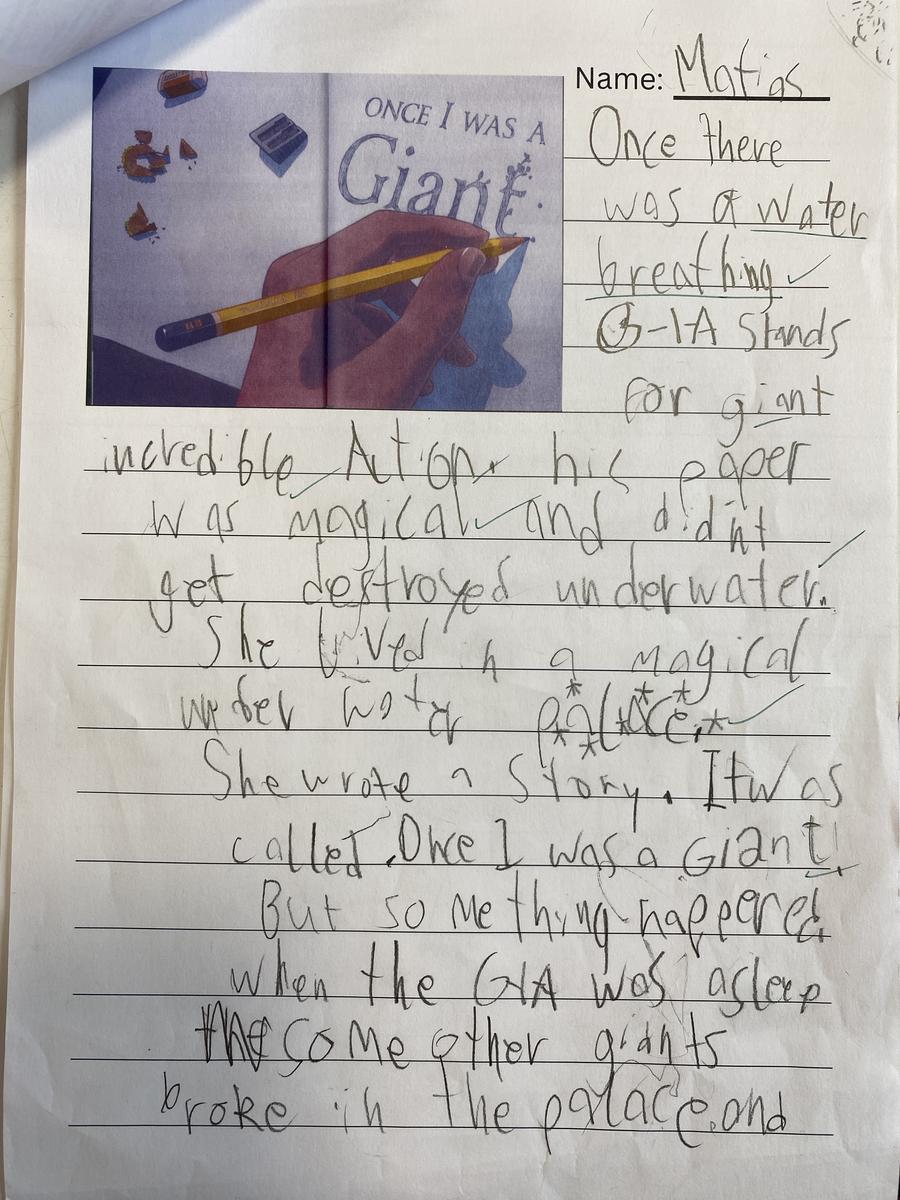 ONCE I WAS A
Giant
Name: Matias
Once there
was a water
breathing
G-I-A Stands
for giant
incredible Action his paper
was magical and didnt
get destroyed underwater.
She lived in a magical
under water palace.
She wrote a Story. It was
called, Once I was a Giant!
But something happened
when the GIA was asleep
some other giants
broke in the palace and